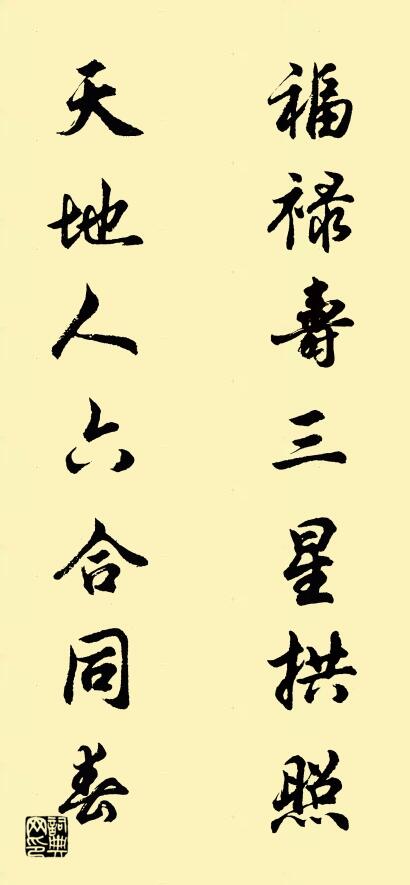 福禄壽三星拱照
天地人六合同春
詞典
网印